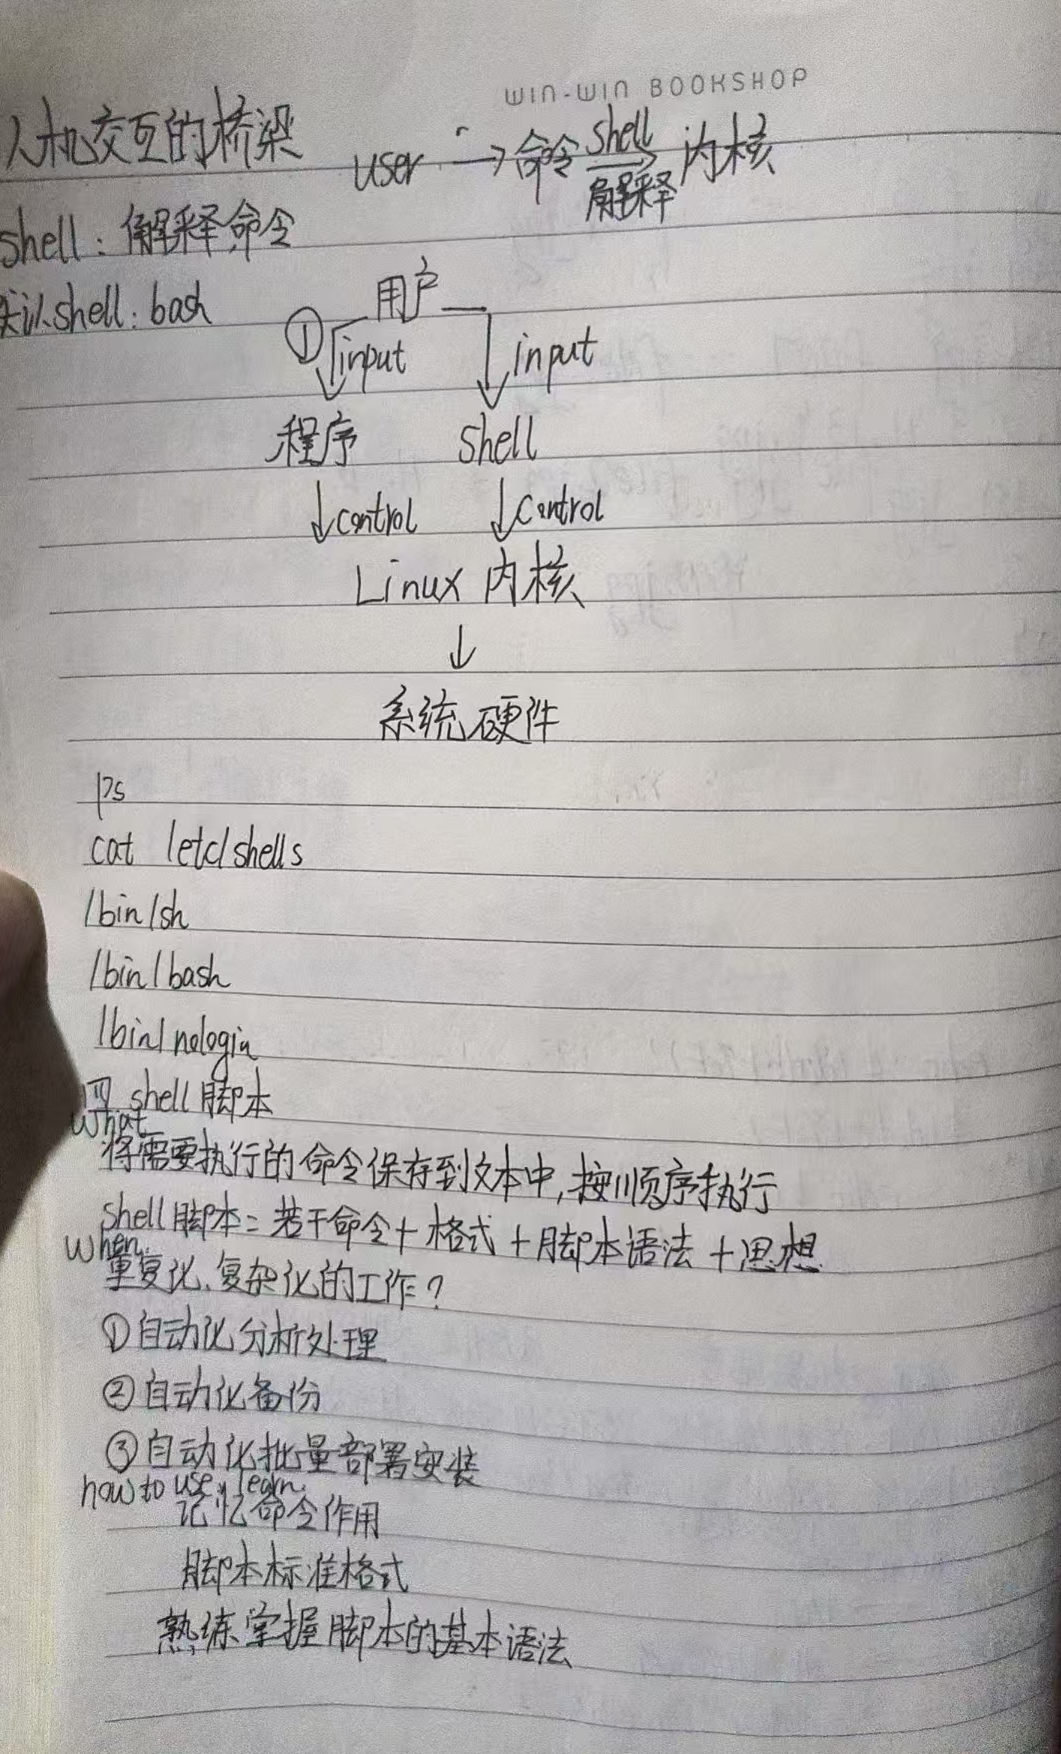 WIN-WIN BOOKSHOP
人机交互的桥梁
user → 命令 shell → 内核
解释
shell: 解释命令
默认shell: bash
用户
① input input
程序 shell
↓control ↓control
Linux 内核
↓
系统硬件
ps
cat /etc/shells
/bin/sh
/bin/bash
/bin/nologin
四 shell 脚本
what
将需要执行的命令保存到文本中,按顺序执行
shell 脚本 = 若干命令 + 格式 + 脚本语法 + 思想
when
重复化、复杂化的工作?
①自动化分析处理
②自动化备份
③自动化批量部署安装
how to use、learn.
记忆命令作用
脚本标准格式
熟练掌握脚本的基本语法